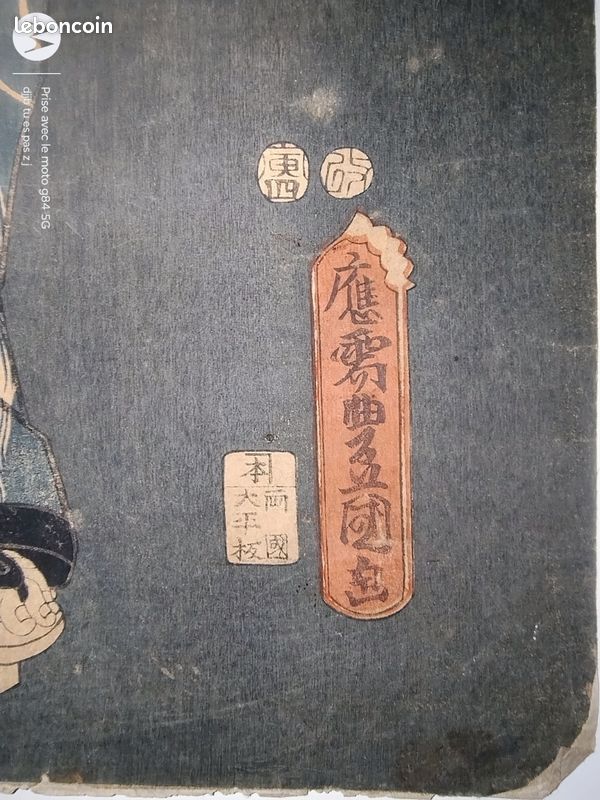 leboncoin
Prise avec le moto g84 5G
djib tu es pas z j
寅四
改
應需豊國画
両國
本
大平板